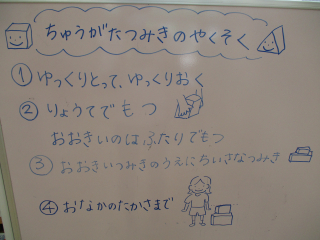 ちゅうがたつみきのやくそく
① ゆっくりとって、ゆっくりおく
② りょうてでもつ
おおきいのはふたりでもつ
③ おおきいつみきのうえにちいさなつみき
④ おなかのたかさまで